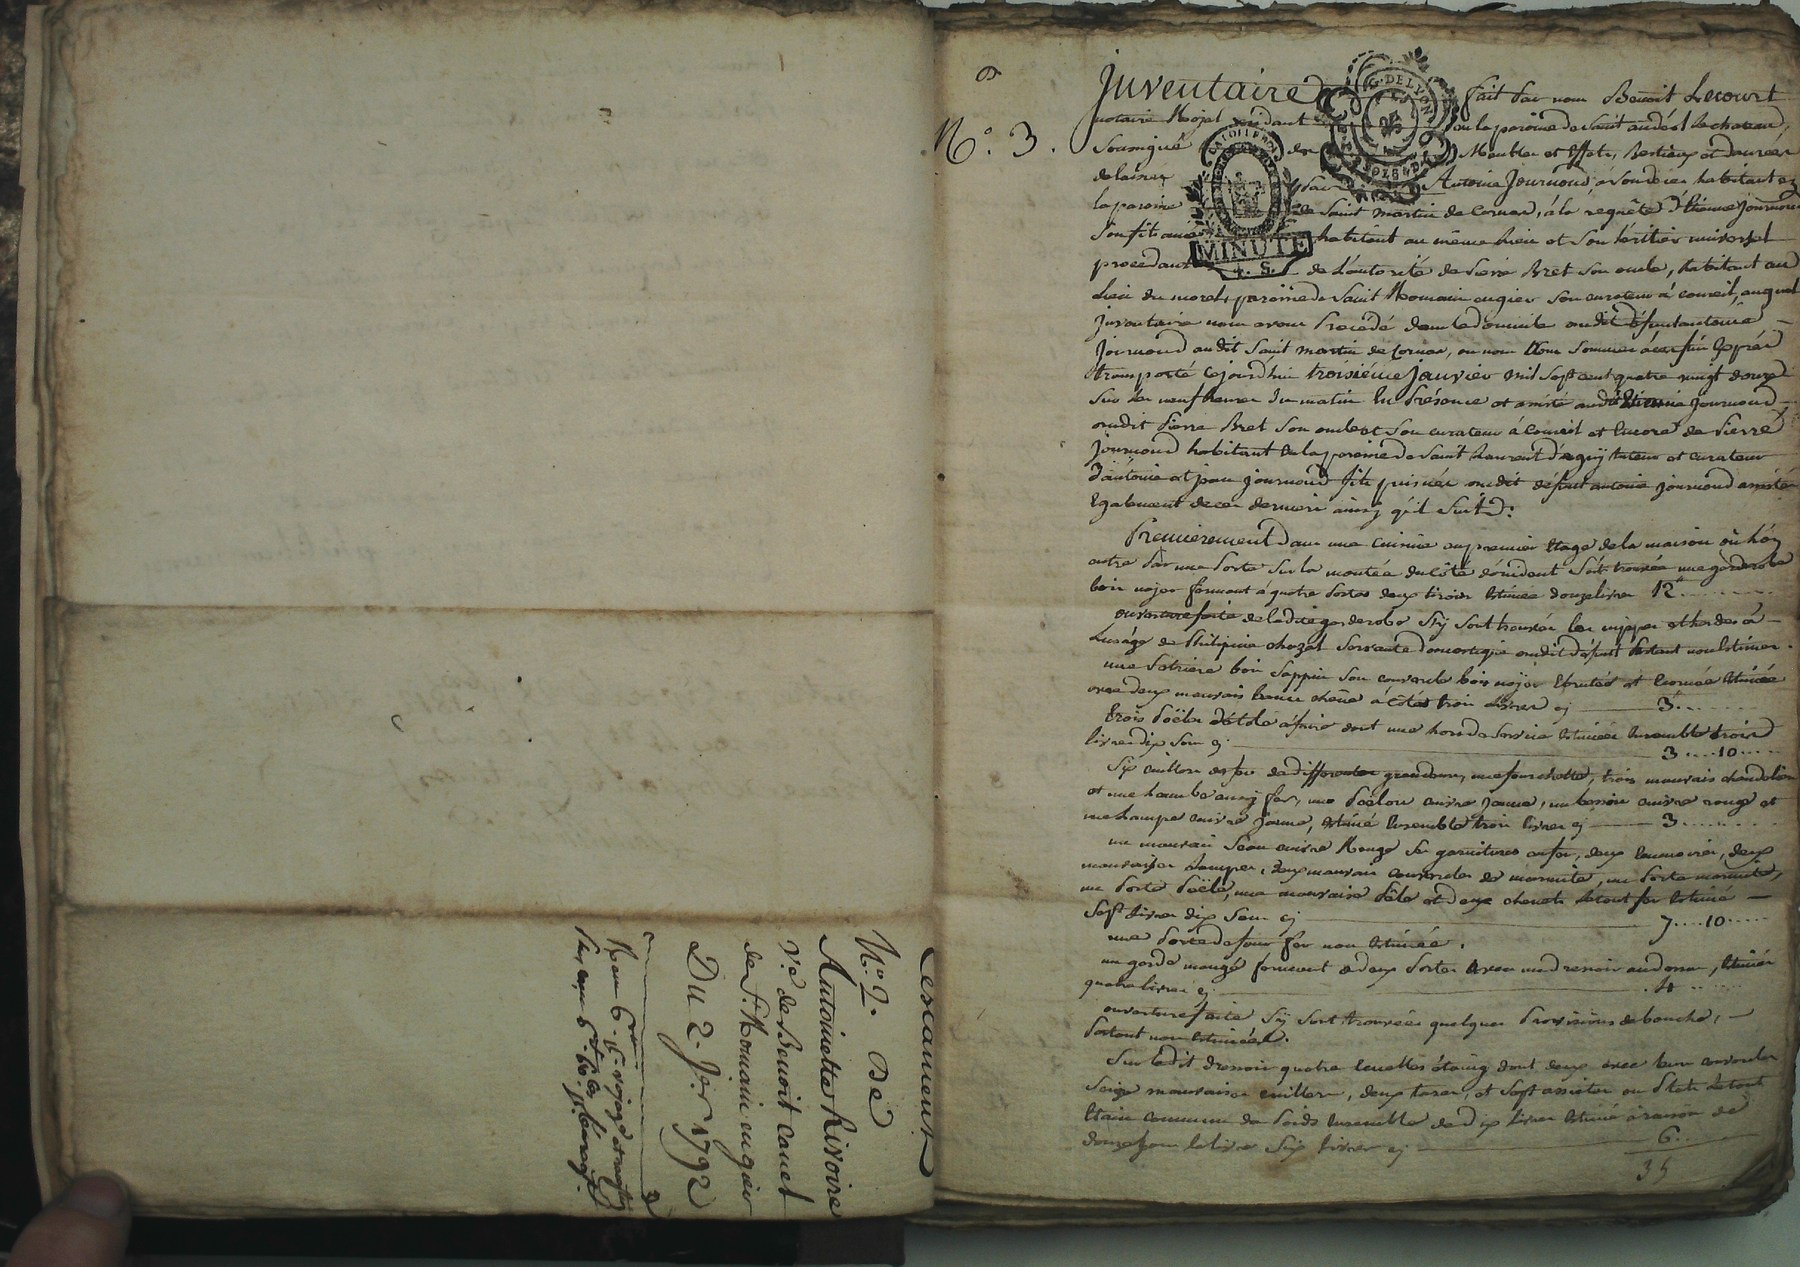 Testament
N.o 2. De
Antoinette Rivoire
v.e de Benoit Canet
de S.t Romain en gier
Du 2. j.er 1792
N.o 3.
Inventaire fait par nous Benoit Lecourt
notaire Royal résidant en la paroisse de Saint andéol le chateau,
Soussigné des Meubles et effets, Bestiaux et danrées
delaissés par Antoine Journoud, a son décès habitant en
la paroisse de Saint martin de Cornas, à la requête d'Etienne Journoud
son fils ainé habitant au même lieu et son héritier universel
procédant de l'autorité de Pierre Bret son oncle, habitant au
lieu du morel, paroisse de Saint Romain en gier son curateur à conseil, auquel
inventaire nous avons procédé dans le domicile dudit défunt antoine
Journoud audit Saint martin de Cornas, ou nous nous sommes à ces fins exprès
transporté cejourd'hui troisième Janvier mil sept cent quatre vingt douze
sur les neuf heures du matin en présence et assisté dudit Etienne Journoud
dudit Pierre Bret son oncle et son curateur à conseil et encore de Pierre
Journoud habitant en la paroisse de Saint Laurent d'agny tuteur et curateur
d'antoine et jean journoud fils puisnés dudit défunt antoine journoud assistés
également de ce dernier ainsy qu'il suit:
Premierement dans une cuisine au premier étage de la maison où l'on
entre par une porte sur la montée du côté d'occident s'est trouvée une garderobe
bois noyer fermant à quatre portes deux tiroirs estimée douze livres 12
ouverture faite de ladite garderobe s'y sont trouvés les nippes et hardes à
l'usage de Philipine chozel servante domestique dudit défunt partant non estimés.
une petrière bois sappin son couvercle bois noyer
avec deux mauvais bancs chêne à côtés trois livres cy 3
trois poëles de tôle à frire dont une hors de service estimées ensemble trois
livres dix sous cy 3 10
Six cuilliers en fer de differentes grandeurs, une fourchette, trois mauvais chandeliers
et une lampe aussi fer, une poëlon cuivre jaune, un bassin cuivre rouge et
une lampe cuivre jaune, estimé ensemble trois livres cy 3
un mauvais seau cuivre Rouge ses garnitures en fer, deux ecumoires, deux
mauvaises lampes, deux mauvais couvercles de marmite, un porte marmite,
un porte poële, une mauvaise pêle et deux chenets le tout fer estimé
sept livres dix sous cy 7 10
une porte de four fer non estimée.
un garde mangé fermant à deux portes avec un dressoir au dessus, estimés
quatre livres cy 4
ouverture faite s'y sont trouvées quelques provisions de bouche,
partant non estimées.
Sur ledit dressoir quatre écuelles étaing dont deux avec leurs couvercles
seize mauvaises cuilliers, deux tasses, et sept assiettes ou plats le tout
étain commun du poids ensemble de dix livres estimé à raison de
douze sous la livre six livres cy 6
35
G. DE LYON
LA LOI LE ROI
MINUTE
4. S.